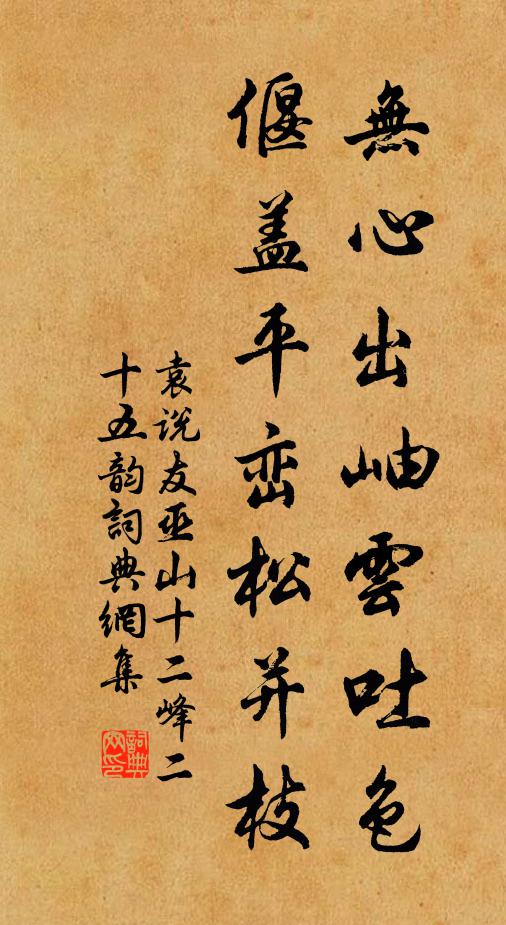 無心出岫雲吐色
偃蓋平峦松并枝
袁説友巫山十二峰二
十五韵詞典網集
詞典網印